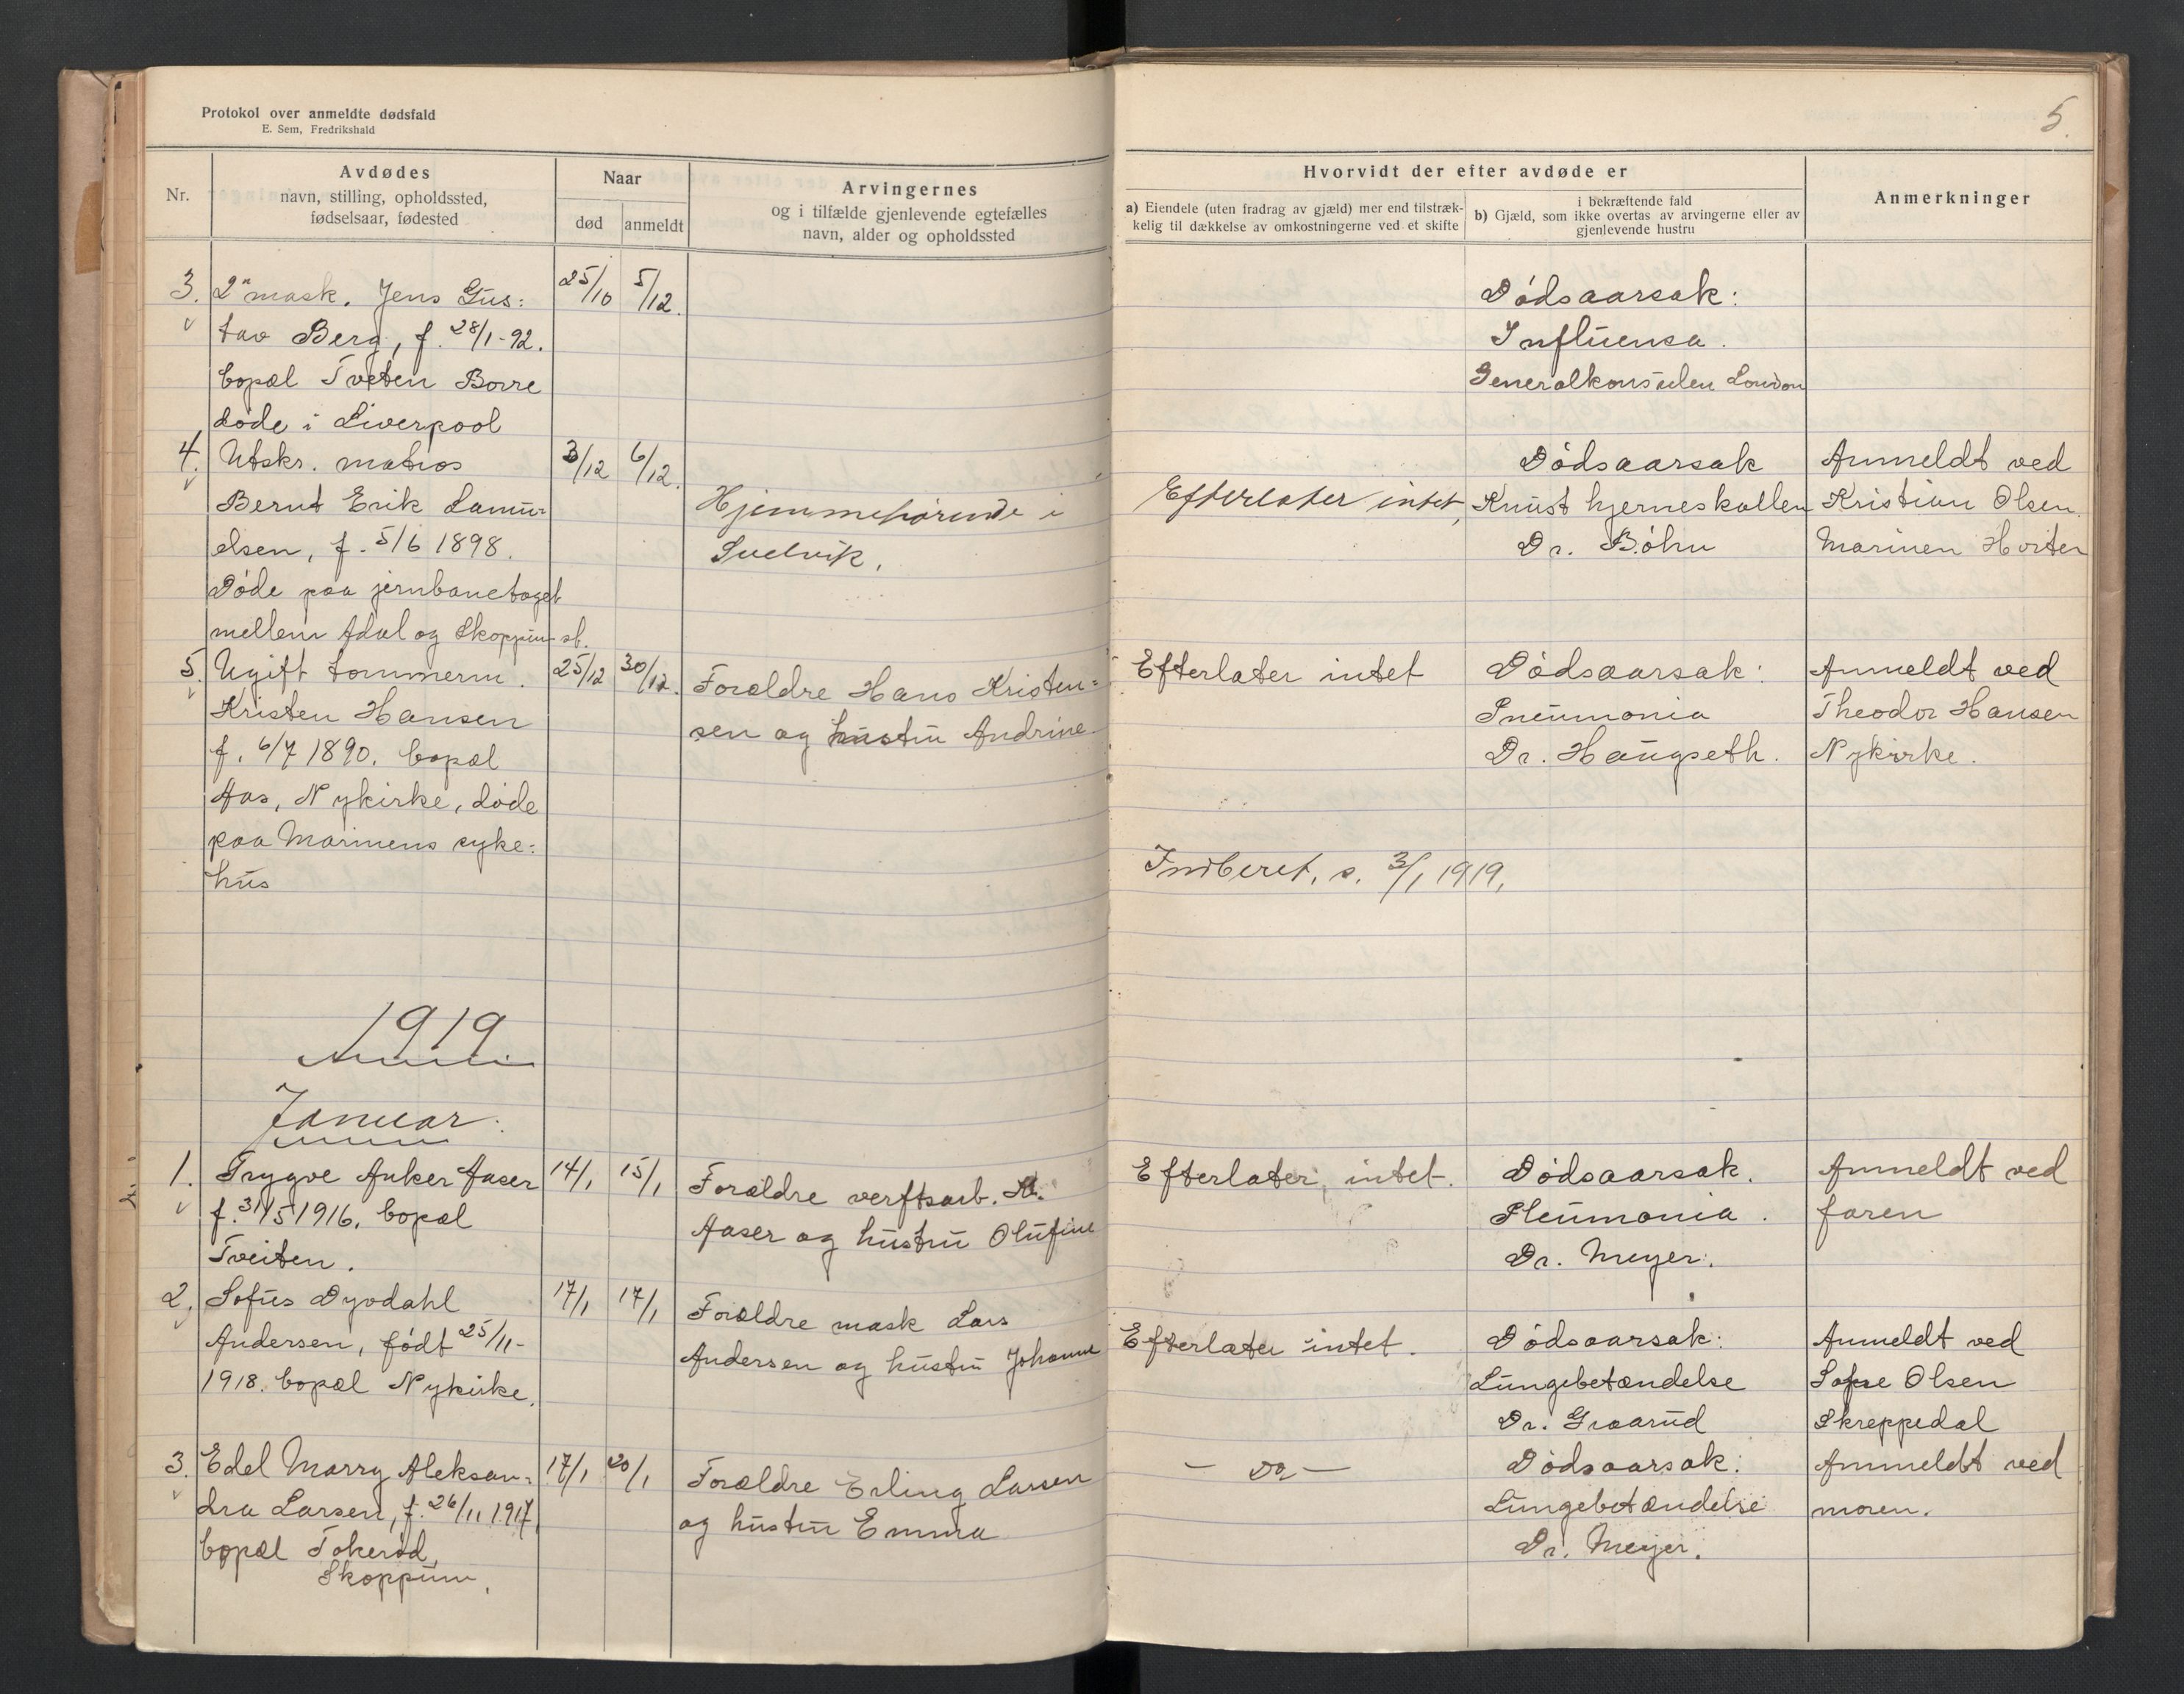 Protokol over anmeldte dødsfald
E. Sem, Fredrikshald
5.
Nr.
Avdødes
navn, stilling, opholdssted,
fødselsaar, fødested
Naar
død
anmeldt
Arvingernes
og i tilfælde gjenlevende egtefælles
navn, alder og opholdssted
Hvorvidt der efter avdøde er
a) Eiendele (uten fradrag av gjæld) mer end tilstræk-
kelig til dækkelse av omkostningerne ved et skifte
i bekræftende fald
b) Gjæld, som ikke overtas av arvingerne eller av
gjenlevende hustru
Anmerkninger
3. 2n mask. Jens Gus:
tav Berg, f. 28/1-92.
bopæl Tveten Borre
døde i Liverpool
25/10 5/12.
Dødsaarsak:
Influensa.
Generalkonsulen London
4. Utskr. matros
Bernt Erik Samu-
elsen, f. 5/6 1898.
Døde paa jernbanetoget
mellem Adal og Skoppum st.
3/12 6/12.
Hjemmehørende i
Svelvik.
Efterlater intet,
Dødsaarsak
Knust hjerneskallen
Dr. Bøhn
Anmeldt ved
Kristian Olsen
Marinen Horten
5. Ugift tømmerm.
Kristen Hansen
f. 6/7 1890. bopæl
Aas, Nykirke, døde
paa Marinens syke:
hus
25/12 30/12.
Forældre Hans Kristen=
sen og hustru Andrine
Efterlater intet
Dødsaarsak:
Pneumonia
Dr. Haugseth.
Anmeldt ved
Theodor Hansen
Nykirke.
Indberet. s. 3/1 1919.
1919
Januar:
1. Trygve Anker Aaser
f. 31/5 1916. bopæl
Tveiten.
14/1 15/1
Forældre verftsarb. Kr.
Aaser og hustru Olufine
Efterlater intet.
Dødsaarsak.
Pleumonia.
Dr. Meyer.
Anmeldt ved
faren
2. Sofus Dyvdahl
Andersen, født 25/11-
1918. bopæl Nykirke.
17/1 17/1
Forældre mask Lars
Andersen og hustru Johanne
Efterlater intet.
Dødsaarsak:
Lungebetændelse
Dr. Graarud
Anmeldt ved
Sofie Olsen
Skreppedal
3. Edel Marry Aleksan=
dra Larsen, f. 26/11 1917,
bopæl Tokerød,
Skoppum.
17/1 20/1
Forældre Erling Larsen
og hustru Emma
— Do —
Dødsaarsak:
Lungebetændelse
Dr. Meyer.
Anmeldt ved
moren.